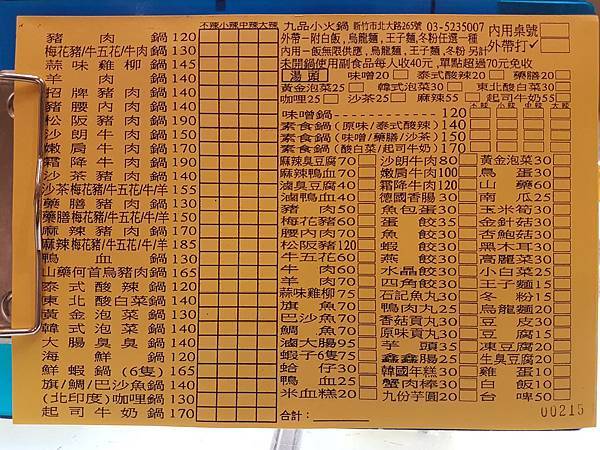 不辣小辣中辣大辣
豬肉鍋120
梅花豬/牛五花/牛肉鍋130
蒜味雞柳鍋145
羊肉鍋140
招牌豬肉鍋140
豬腰內肉鍋140
松阪豬肉鍋190
沙朗牛肉鍋150
嫩肩牛肉鍋170
霜降牛肉鍋190
沙茶豬肉鍋140
沙茶梅花豬/牛五花/牛/羊155
藥膳豬肉鍋130
藥膳梅花豬/牛五花/牛/羊150
麻辣豬肉鍋170
麻辣梅花豬/牛五花/牛/羊185
鴨血鍋130
山藥何首烏豬肉鍋165
泰式酸辣鍋120
東北酸白菜鍋140
黃金泡菜鍋130
韓式泡菜鍋140
大腸臭臭鍋140
海鮮鍋150
鮮蝦鍋(6隻)165
旗/鯛/巴沙魚鍋140
(北印度)咖哩鍋130
起司牛奶鍋170
九品小火鍋 新竹市北大路265號 03-5235007
外帶一附白飯,烏龍麵,王子麵,冬粉任選一種
內用一飯無限供應,烏龍麵,王子麵,冬粉 另計
未開鍋使用副食品每人收40元,單點超過70元免收
內用桌號
外帶打✓
湯頭 味噌20 泰式酸辣20 藥膳20
黃金泡菜25 韓式泡菜30 東北酸白菜30
咖哩25 沙茶25 麻辣55 起司牛奶55
味噌鍋120
素食鍋(原味/泰式酸辣)140
素食鍋(味噌/藥膳/沙茶)150
素食鍋(酸白菜/起司牛奶)170
麻辣臭豆腐70
麻辣鴨血70
滷臭豆腐40
滷鴨血40
豬肉50
梅花豬60
腰內肉70
松阪豬120
牛五花60
牛肉60
羊肉60
蒜味雞柳75
旗魚70
巴沙魚70
鯛魚70
滷大腸95
蝦子6隻75
蛤仔30
鴨血25
米血糕20
沙朗牛肉80
嫩肩牛肉100
霜降牛肉120
德國香腸30
魚包蛋30
蛋餃35
魚餃30
蝦餃30
燕餃30
水晶餃30
四角餃30
石記魚丸30
鴨肉丸35
香菇貢丸30
原味貢丸30
芋頭35
鑫鑫腸25
韓國年糕30
蟹肉棒30
九份芋圓20
黃金泡菜30
鳥蛋30
山藥60
南瓜25
玉米筍30
金針菇30
杏鮑菇30
黑木耳30
高麗菜30
小白菜25
王子麵15
冬粉15
烏龍麵20
豆皮30
豆腐15
凍豆腐20
生臭豆腐20
雞蛋10
白飯10
台啤50
合計:
00215